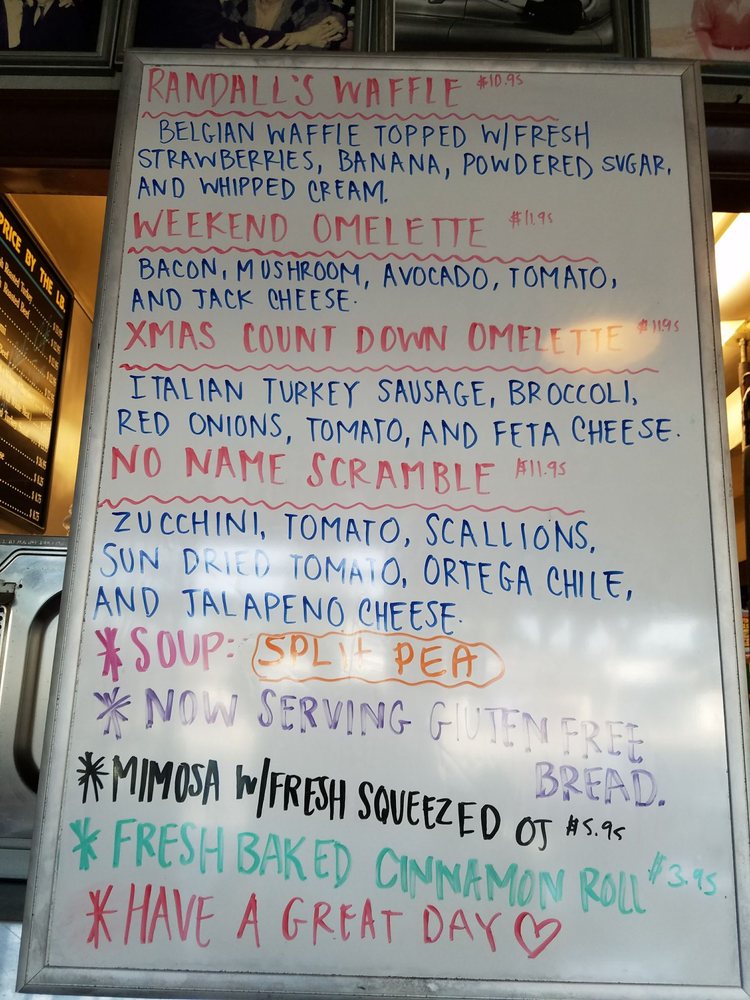 RANDALL'S WAFFLE $10.95
BELGIAN WAFFLE TOPPED W/FRESH
STRAWBERRIES, BANANA, POWDERED SUGAR,
AND WHIPPED CREAM.
WEEKEND OMELETTE $11.95
BACON, MUSHROOM, AVOCADO, TOMATO,
AND JACK CHEESE.
XMAS COUNT DOWN OMELETTE $11.95
ITALIAN TURKEY SAUSAGE, BROCCOLI,
RED ONIONS, TOMATO, AND FETA CHEESE.
NO NAME SCRAMBLE $11.95
ZUCCHINI, TOMATO, SCALLIONS,
SUN DRIED TOMATO, ORTEGA CHILE,
AND JALAPENO CHEESE.
*SOUP: SPLIT PEA
*NOW SERVING GLUTEN FREE
BREAD.
*MIMOSA W/FRESH SQUEEZED OJ $5.95
*FRESH BAKED CINNAMON ROLL $3.95
*HAVE A GREAT DAY ♡
PRICE BY THE LB.